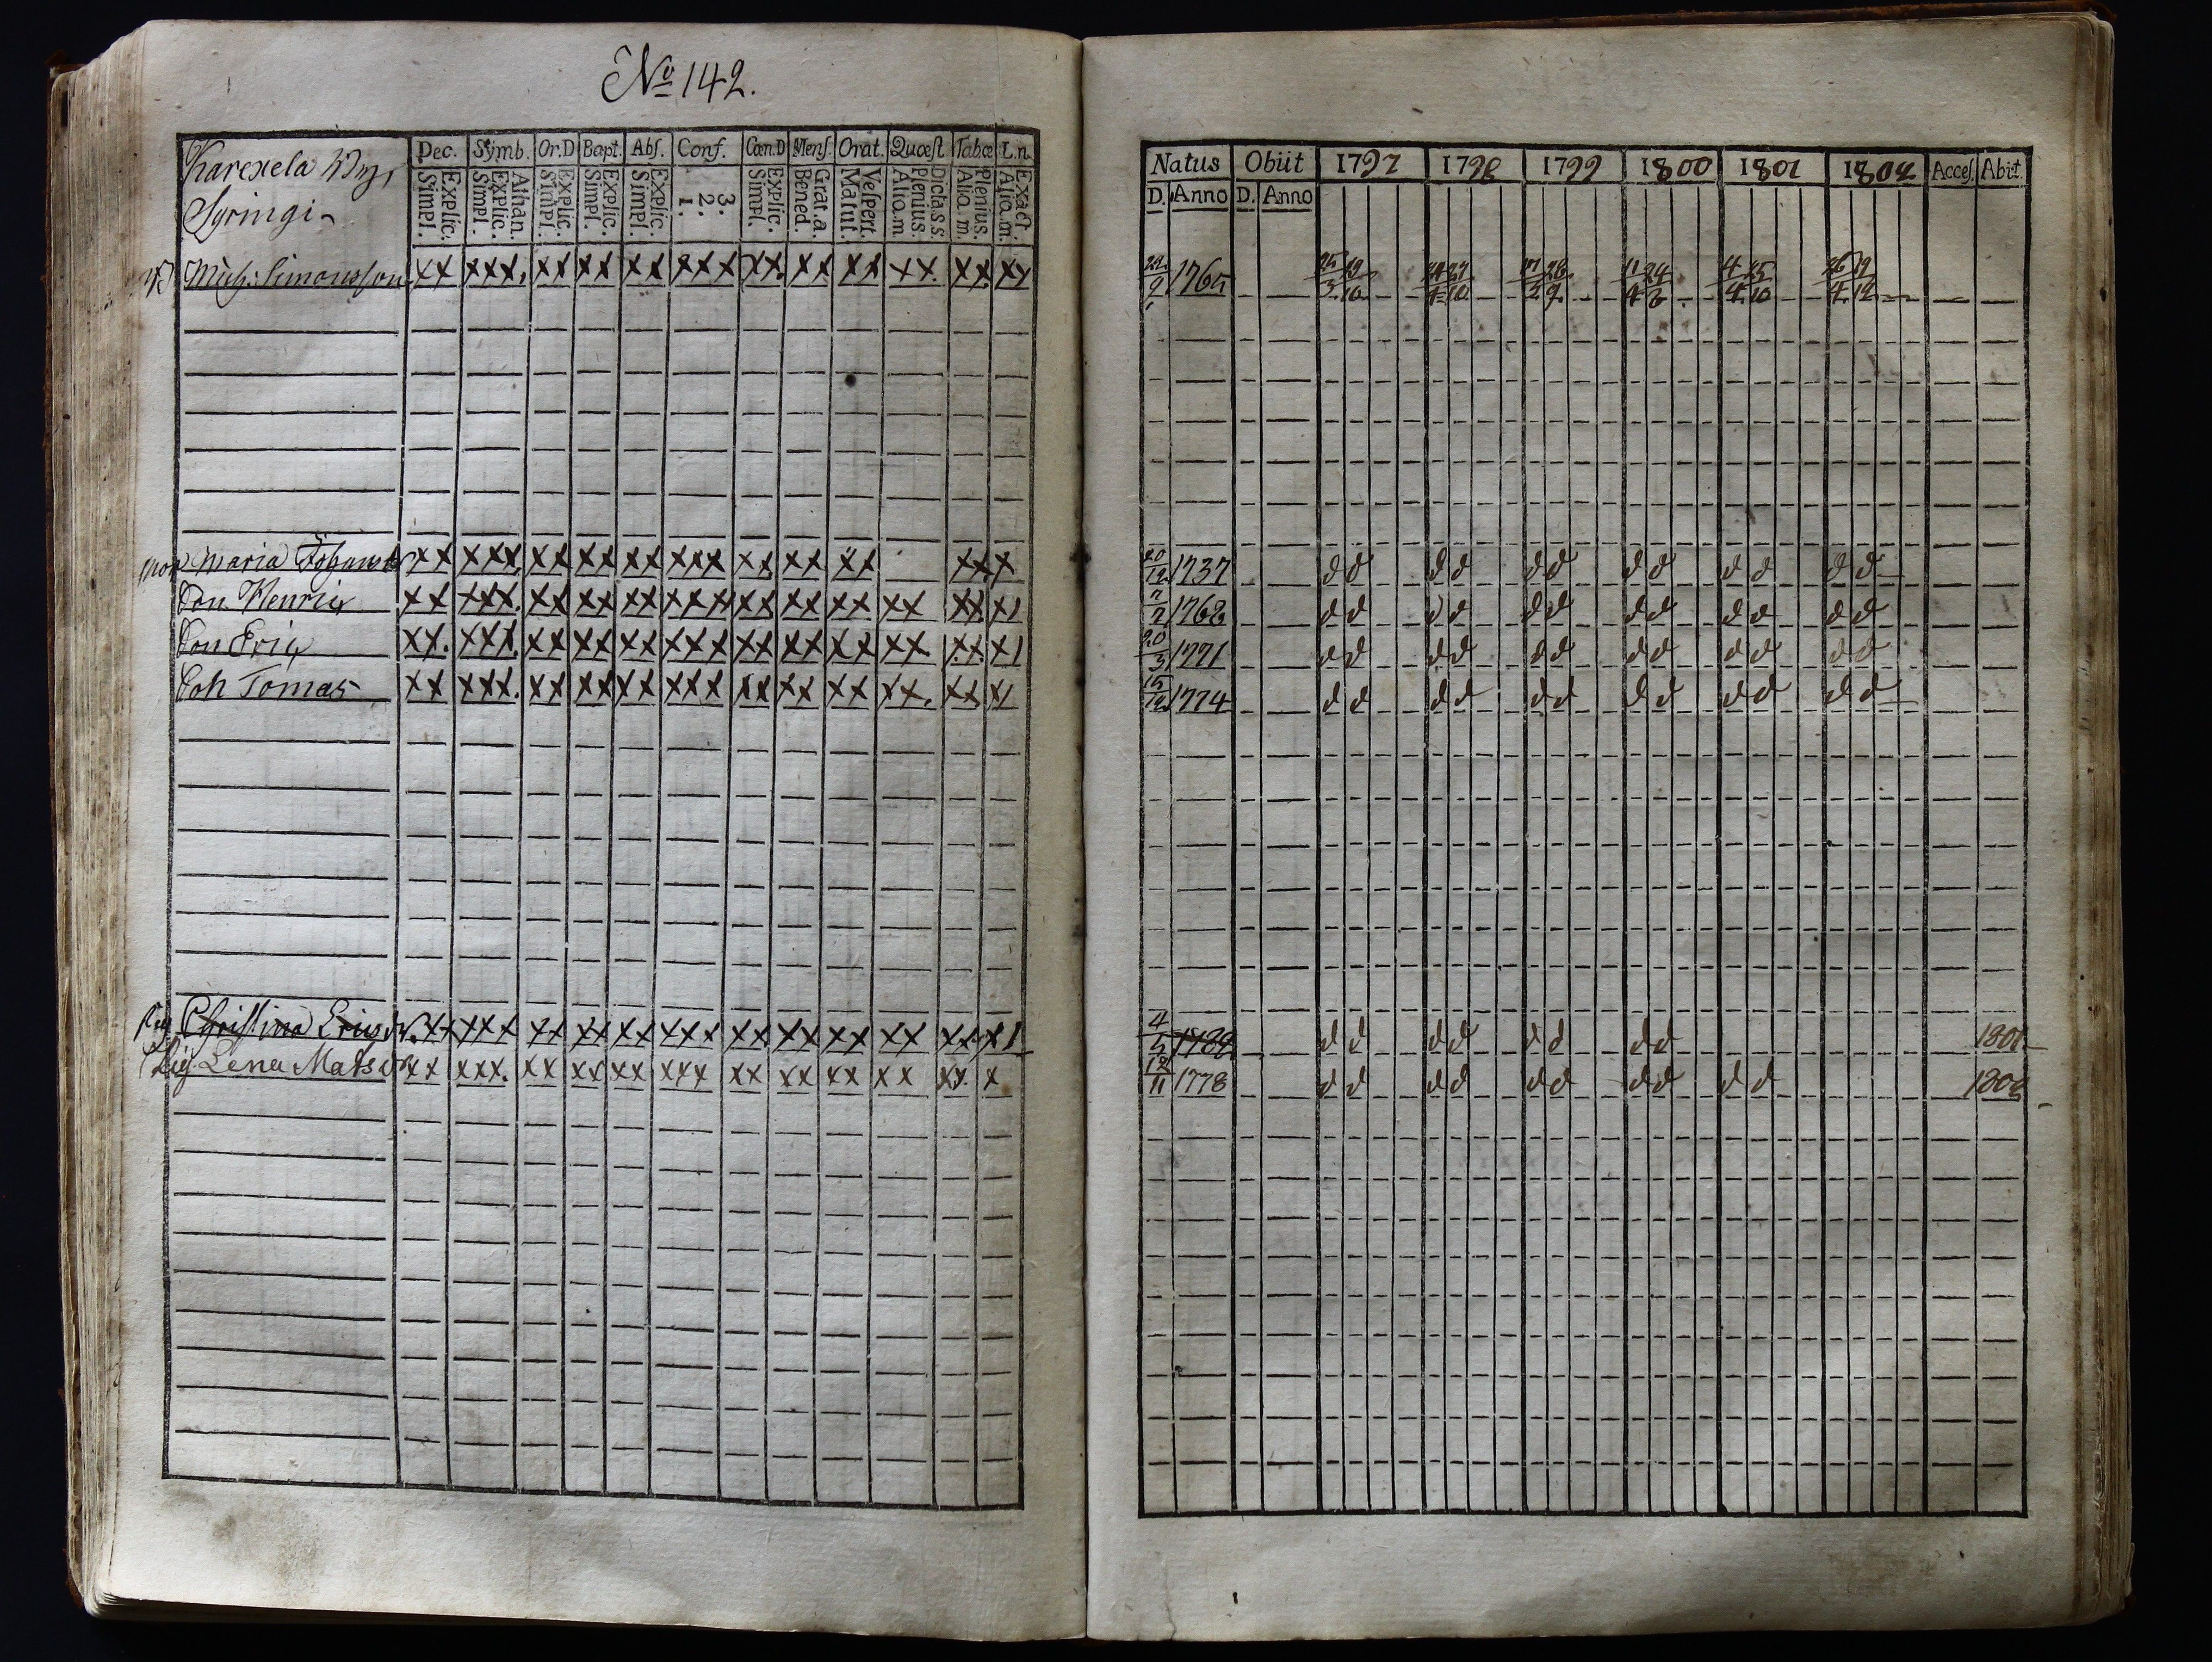 No 142.
Karexela By,
Syringi
Dec. Symb. Or.D Bapt. Abſ. Conf. Cœn.D Menſ. Orat. Quœſt. Tab.œ L.n.
Explic. Simpl. Athan. Explic. Simpl. Explic. Simpl. Explic. Simpl. Explic. Simpl. 3. 2. 1. Explic. Simpl. Grat.a. Bened. Veſpert. Matut. Dicta.s.s. Plenius. Alio.m. Plenius. Alio.m. Exact. Alio.m.
Mich: Simonsson xx xxx. xx xx xx xxx xx. xx xx xx. xx. xx
Mor Maria xx xxx xx xx xx xxx xx xx xx xx x
Son Henric xx xxx. xx xx xx xxx xx xx xx xx xx. x1
Son Eric xx. xxx. xx xx xx xxx xx xx xx xx. x.x. x1
Son Tomas xx xxx. xx xx xx xxx xx xx xx xx. xx x1
Pig Christina Ericsdr. xx xxx xx xx xx xxx xx xx xx xx xx. x1
Pig Lena Matsdr xx xxx. xx xx xx xxx xx xx xx xx xx. x
Natus Obiit 1797 1798 1799 1800 1801 1802 Acceſ. Abiit.
D. Anno D. Anno
29/9 1765 25/3 19/10 27/10 17/2 28/9 11/4 24/6 4/4 25/10 26/4 19/12
20/12 1737 d d d d d d d d d d d d
7/2 1768 d d d d d d d d d d d d
20/3 1771 d d d d d d d d d d d d
15/12 1774 d d d d d d d d d d d d
4/5 d d d d d d d d 1801
12/11 1778 d d d d d d d d d d 1802